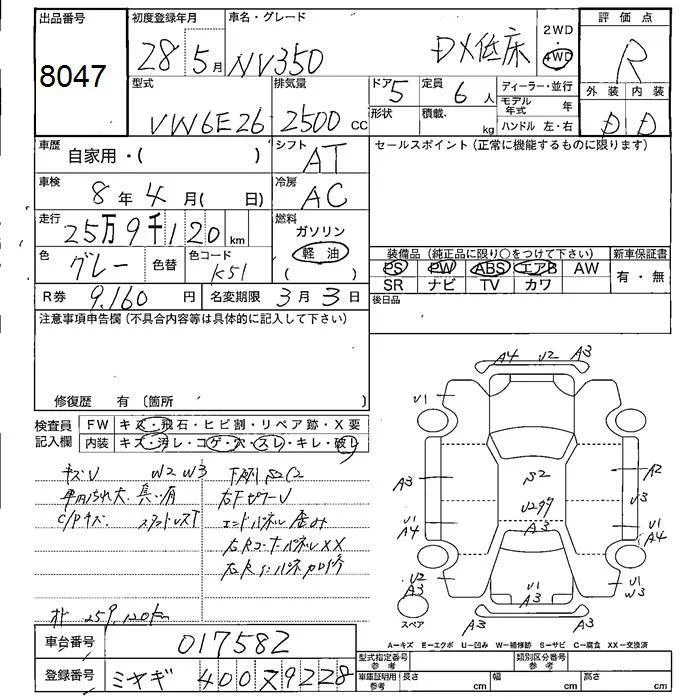 出品番号
8047
初度登録年月
28 5月
車名・グレード
NV350 DX低床
2WD
4WD
評価点
R
外装 内装
D D
型式
VW6E26
排気量
2500 CC
ドア
5
形状
定員
6 人
積載.
kg
ディーラー・並行
モデル年式 年
ハンドル 左・右
車歴
自家用・( )
シフト
AT
セールスポイント(正常に機能するものに限ります)
車検
8年4月( 日)
冷房
AC
走行
25万9千120km
燃料
ガソリン
軽油
( )
色
グレー
色替
色コード
K51
装備品(純正品に限り○をつけて下さい)
PS PW ABS エアB AW
SR ナビ TV カワ
新車保証書
有・無
R券 9,160円
名変期限 3月3日
後日品
注意事項申告欄(不具合内容等は具体的に記入して下さい)
修復歴 有(箇所 )
検査員記入欄
FW キズ・飛石・ヒビ割・リペア跡・X要
内装 キズ・汚レ・コゲ・穴・スレ・キレ・破レ
キズU W2 W3
C/Pキズ
下廻りS2C2
エンドパネル歪み
右Rコーナーパネル XX
オド 259,120km
A4 U2 A3
U1
A3
U1
A4
U2
A3
S2
U29ケ
A3
A2
U3
U1
A4
U1
W3
U1
A3
A3
スペア
A−キズ E−エクボ U−凹み W−補修跡 S−サビ C−腐食 XX−交換済
車台番号
017582
登録番号
ミヤギ 400 ヌ 9228
型式指定番号
参考
類別区分番号
参考
車庫証明用
参考
長さ cm
幅 cm
高さ cm